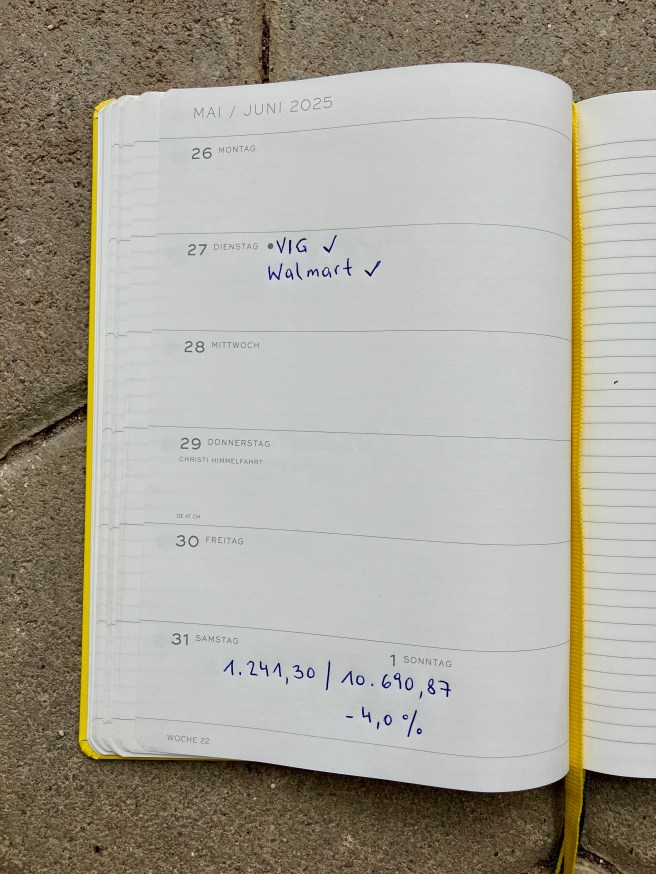 MAI / JUNI 2025
26 MONTAG
27 DIENSTAG •VIG ✓
Walmart ✓
28 MITTWOCH
29 DONNERSTAG
CHRISTI HIMMELFAHRT
DE AT CH
30 FREITAG
31 SAMSTAG
1 SONNTAG
1.241,30 | 10.690,87
-4,0 %
WOCHE 22